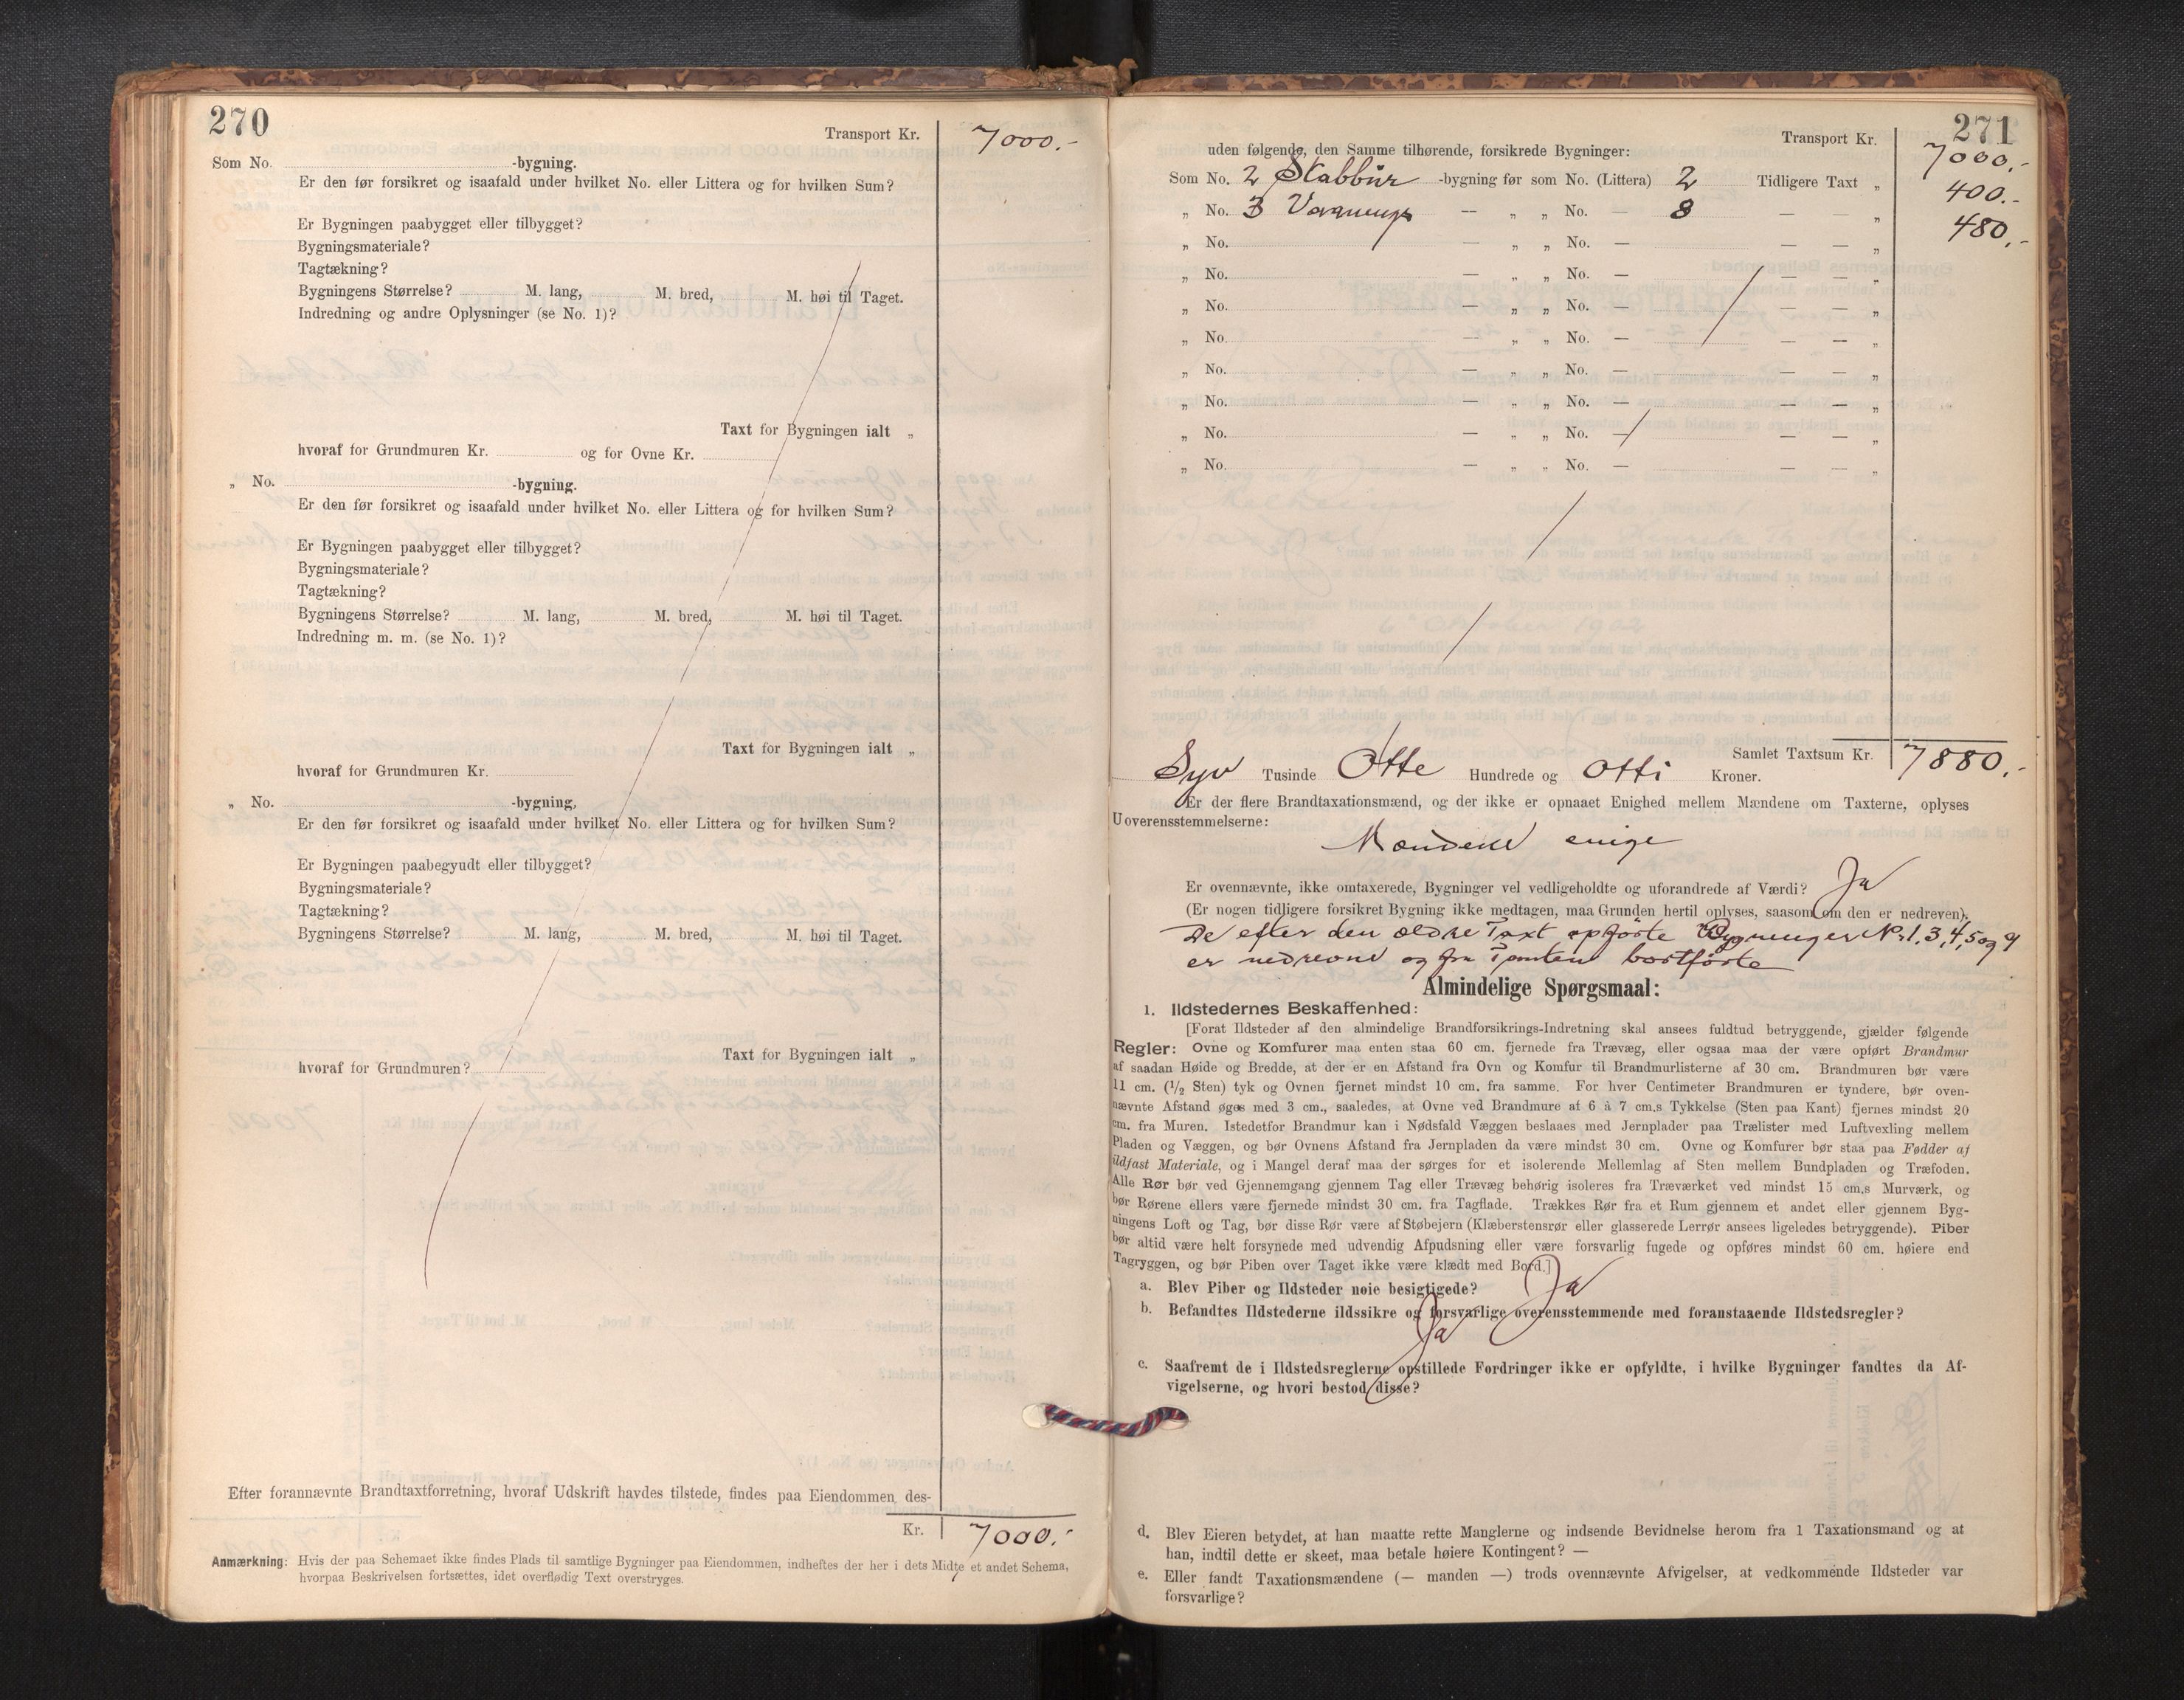 270
Transport Kr. 7000.-
Som No. -bygning.
Er den før forsikret og isaafald under hvilket No. eller Littera og for hvilken Sum?
Er Bygningen paabygget eller tilbygget?
Bygningsmateriale?
Tagtækning?
Bygningens Størrelse? M. lang, M. bred, M. høi til Taget.
Indredning og andre Oplysninger (se No. 1)?
Taxt for Bygningen ialt „
hvoraf for Grundmuren Kr. og for Ovne Kr.
„ No. -bygning.
Er den før forsikret og isaafald under hvilket No. eller Littera og for hvilken Sum?
Er Bygningen paabygget eller tilbygget?
Bygningsmateriale?
Tagtækning?
Bygningens Størrelse? M. lang, M. bred, M. høi til Taget.
Indredning m. m. (se No. 1)?
Taxt for Bygningen ialt „
hvoraf for Grundmuren Kr.
„ No. -bygning,
Er den før forsikret og isaafald under hvilket No. eller Littera og for hvilken Sum?
Er Bygningen paabegyudt eller tilbygget?
Bygningsmateriale?
Tagtækning?
Bygningens Størrelse? M. lang, M. bred, M. høi til Taget.
Taxt for Bygningen ialt „
hvoraf for Grundmuren?
Efter forannævnte Brandtaxtforretning, hvoraf Udskrift havdes tilstede, findes paa Eiendommen des-
Kr. 7000.-
Anmærkning: Hvis der paa Schemaet ikke findes Plads til samtlige Bygninger paa Eiendommen, indheftes der her i dets Midte et andet Schema,
hvorpaa Beskrivelsen fortsættes, idet overflødig Text overstryges.
271
Transport Kr. 7000.-
uden følgende, den Samme tilhørende, forsikrede Bygninger:
Som No. 2 Stabbür -bygning før som No. (Littera) 2 Tidligere Taxt „ 400.-
„ No. 3 — „ „ No. — 8 — — „ 480,-
„ No. — „ „ No. — — — „
„ No. — „ „ No. — — — „
„ No. — „ „ No. — — — „
„ No. — „ „ No. — — — „
„ No. — „ „ No. — — — „
„ No. — „ „ No. — — — „
„ No. — „ „ No. — — — „
„ No. — „ „ No. — — — „
Samlet Taxtsum Kr. 7880.-
Syv Tusinde Otte Hundrede og Otti Kroner.
Er der flere Brandtaxationsmænd, og der ikke er opnaaet Enighed mellem Mændene om Taxterne, oplyses
Uoverensstemmelserne:
Mændene enige
Er ovennævnte, ikke omtaxerede, Bygninger vel vedligeholdte og uforandrede af Værdi? Ja
(Er nogen tidligere forsikret Bygning ikke medtagen, maa Grunden hertil oplyses, saasom om den er nedreven).
De efter den ældre Taxt opførte Bygninger No 1, 3, 4, 5 og 9
er nedrevne og fra Tomten bortførte
Almindelige Spørgsmaal:
1. Ildstedernes Beskaffenhed:
[Forat Ildsteder af den almindelige Brandforsikrings-Indretning skal ansees fuldtud betryggende, gjælder følgende
Regler: Ovne og Komfurer maa enten staa 60 cm. fjernede fra Trævæg, eller ogsaa maa der være opført Brandmur
af saadan Høide og Bredde, at der er en Afstand fra Ovn og Komfur til Brandmurlisterne af 30 cm. Brandmuren bør være
11 cm. (1/2 Sten) tyk og Ovnen fjernet mindst 10 cm. fra samme. For hver Centimeter Brandmuren er tyndere, bør oven-
nævnte Afstand øges med 3 cm., saaledes, at Ovne ved Brandmure af 6 à 7 cm.s Tykkelse (Sten paa Kant) fjernes mindst 20
cm. fra Muren. Istedetfor Brandmur kan i Nødsfald Væggen beslaaes med Jernplader paa Trælister med Luftvexling mellem
Pladen og Væggen, og bør Ovnens Afstand fra Jernpladen da være mindst 30 cm. Ovne og Komfurer bør staa paa Fødder af
ildfast Materiale, og i Mangel deraf maa der sørges for et isolerende Mellemlag af Sten mellem Bundpladen og Træfoden.
Alle Rør bør ved Gjennemgang gjennem Tag eller Trævæg behørig isoleres fra Træværket ved mindst 15 cm.s Murværk, og
bør Rørene ellers være fjernede mindst 30 cm. fra Tagflade. Trækkes Rør fra et Rum gjennem et andet eller gjennem Byg-
ningens Loft og Tag, bør disse Rør være af Støbejern (Klæberstensrør eller glasserede Lerrør ansees ligeledes betryggende). Piber
bør altid være helt forsynede med udvendig Afpudsning eller være forsvarlig fugede og opføres mindst 60 cm. høiere end
Tagryggen, og bør Piben over Taget ikke være klædt med Bord.]
a. Blev Piber og Ildsteder nøie besigtigede? Ja
b. Befandtes Ildstederne ildssikre og forsvarlige overensstemmende med foranstaaende Ildstedsregler?
Ja
c. Saafremt de i Ildstedsreglerne opstillede Fordringer ikke er opfyldte, i hvilke Bygninger fandtes da Af-
vigelserne, og hvori bestod disse?
d. Blev Eieren betydet, at han maatte rette Manglerne og indsende Bevidnelse herom fra 1 Taxationsmand og at
han, indtil dette er skeet, maa betale høiere Kontingent? —
e. Eller fandt Taxationsmændene (— manden —) trods ovennævnte Afvigelser, at vedkommende Ildsteder var
forsvarlige?